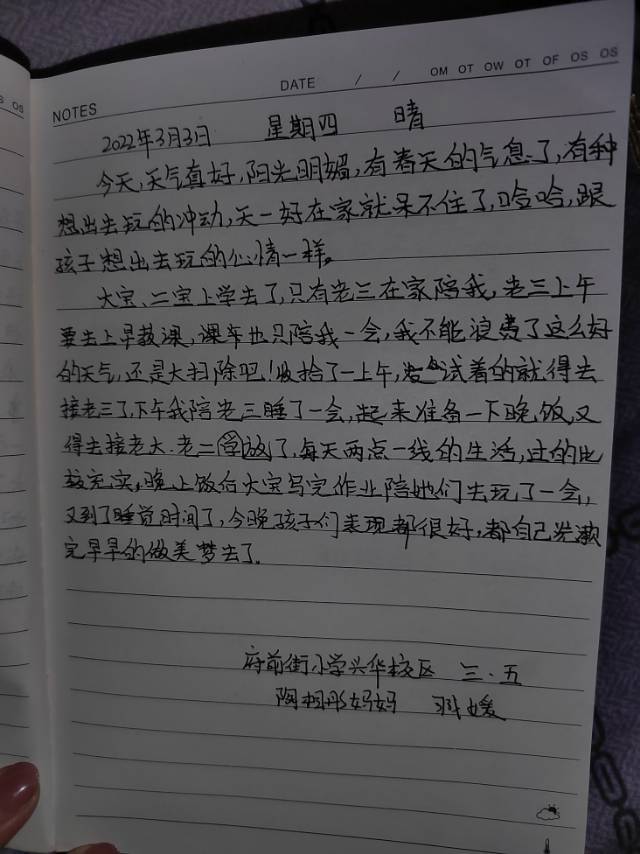 NOTES
DATE / / OM OT OW OT OF OS OS
2022年3月3日 星期四 晴
今天,天气真好,阳光明媚,有春天的气息了,有种
想出去玩的冲动,天一好在家就呆不住了,哈哈,跟
孩子想出去玩的心情一样。
大宝、二宝上学去了,只有老三在家陪我,老三上午
要去上早教课,课车也只陪我一会,我不能浪费了这么好
的天气,还是大扫除吧!收拾了一上午,试着的就得去
接老三了,下午我陪老三睡了一会,起来准备一下晚饭,又
得去接老大.老二学放了,每天两点一线的生活,过的比
较充实,晚上饭后大宝写完作业陪她们去玩了一会,
又到了睡觉时间了,今晚孩子们表现都很好,都自己洗漱
完早早的做美梦去了。
府前街小学兴华校区 三.五
妈妈